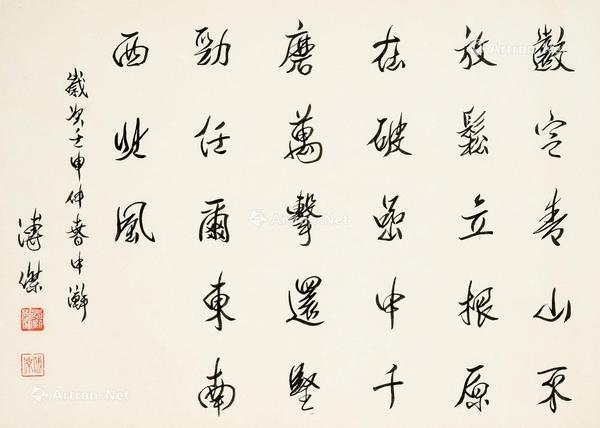 齩定青山不
放鬆立根原
在破嵒中千
磨萬擊還堅
勁任爾東南
西北風
歲次壬申仲春中澣
溥傑
Artron.Net
Artron.Net
Artron.Net